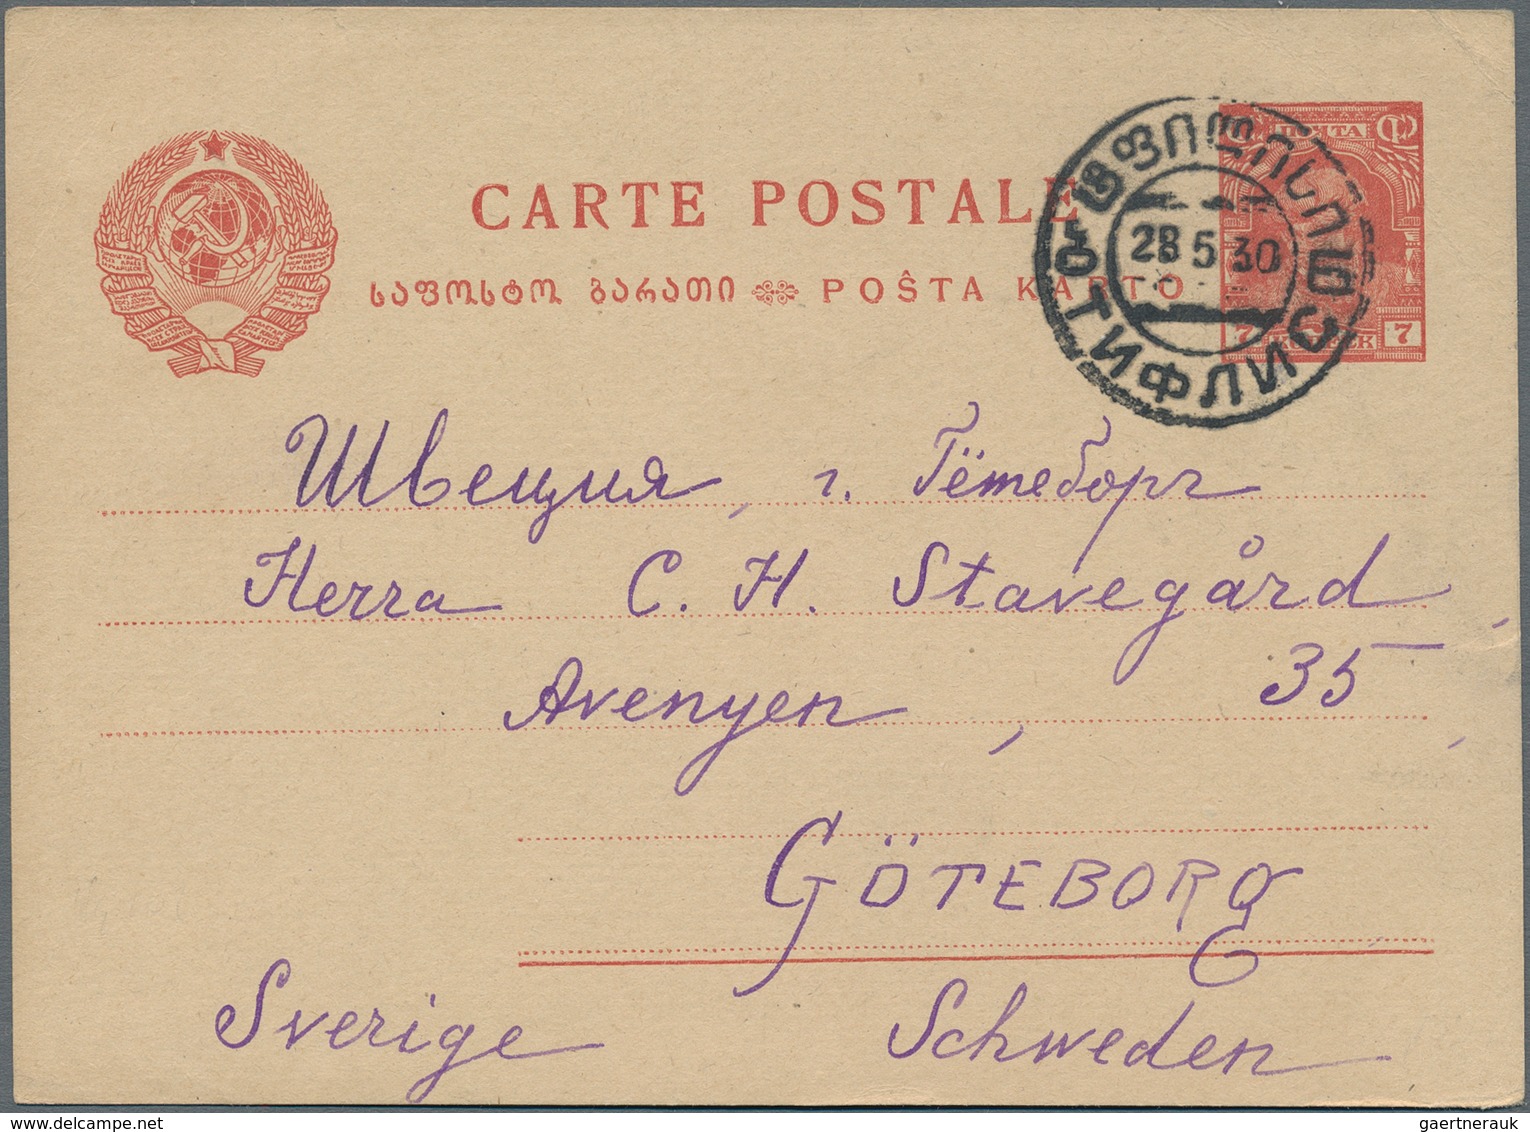 CARTE POSTALE
ᲡᲐᲤᲝᲡᲢᲝ ᲑᲐᲠᲐᲗᲘ POŜTA KARTO
ПОЧТА
7 7
28 5 30
ТИФЛИЗ
Швеция, г. Гётеборг
Herra C. H. Stavegård,
Avenyen, 35,
GÖTEBORG
Sverige Schweden
gaertnerauk